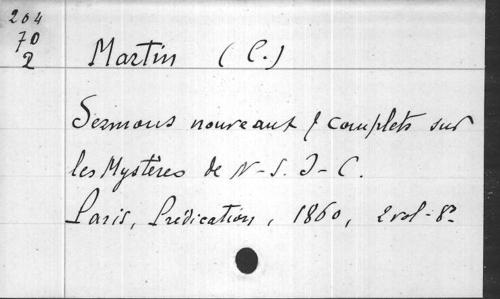 204
70
2
Martin (C.)
Sermons nouveaux & complets sur
les Mystères de N-S. J-C.
Paris, Prédication, 1860, 2 vol-8º